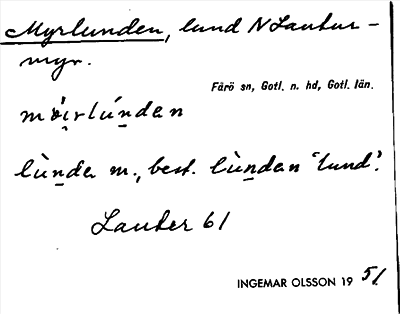 Myrlunden, lund N Lautur-
myr.
Fårö sn, Gotl. n. hd, Gotl. län.
lùnda m., best. lùndan 'lund'.
Lauter 61
INGEMAR OLSSON 19 51